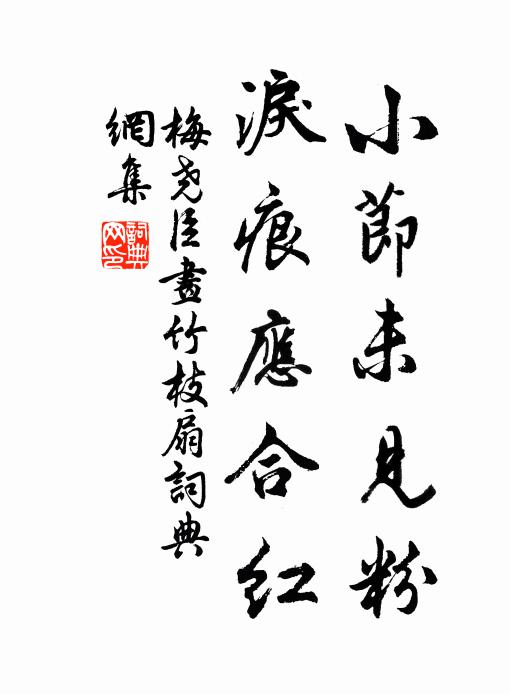 小節未見粉
淚痕應合紅
梅堯臣畫竹枝扇詞典
網集
詞典
網印